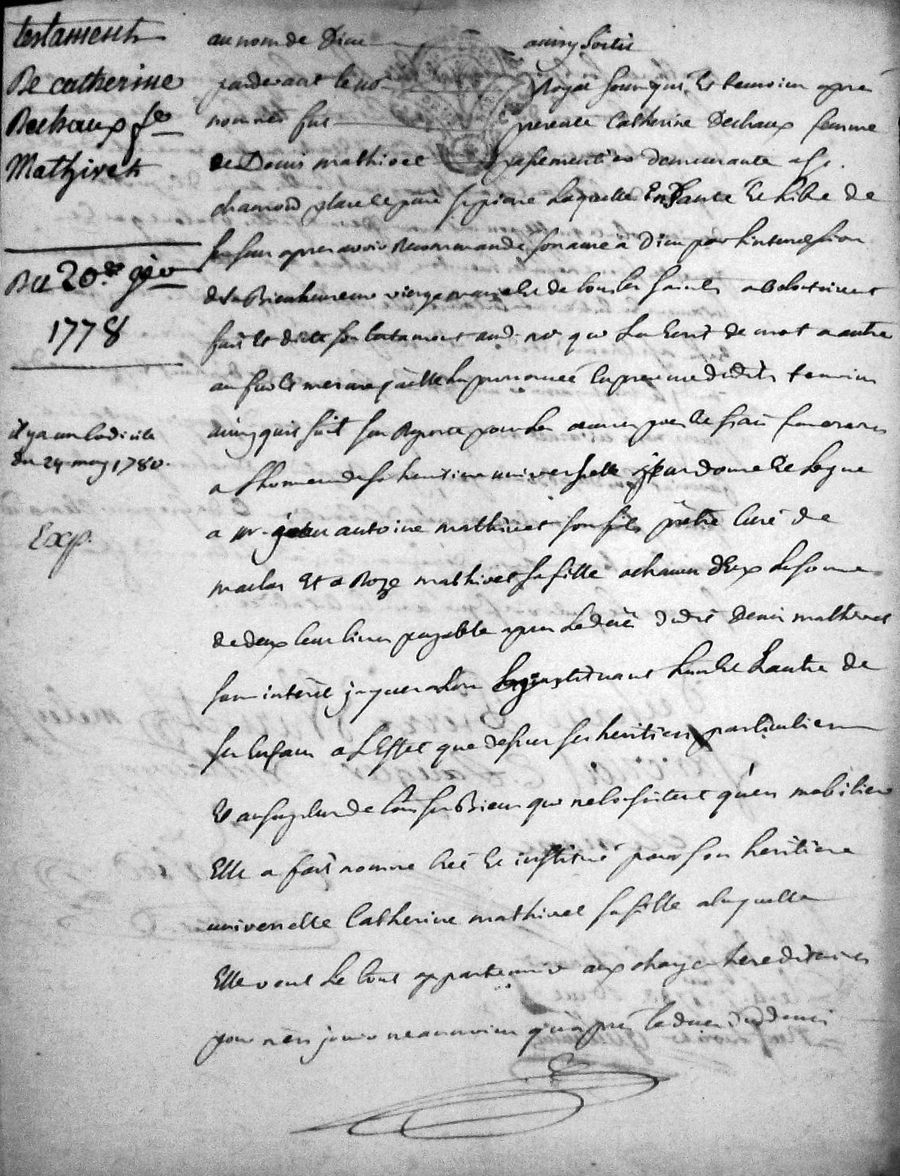 testament
De catherine
Dechaux fe
Mathivet
Du 20e 9bre
1778
il y a un codicile
du 24 may 1780.
Exp.
au nom de Dieu ainsy soit il
pardevant le no royal soussigné Et temoins apres
nommés fut presente Catherine Dechaux femme
de Denis mathivet demeurante a st
chamond place et paroisse st pierre Laquelle En Santé Et libre de
ses sens apres avoir Recommandé son ame a Dieu par l'intercession
de la Bienheureuse vierge marie Et de tous les saints a
fait Et dicté son testament audt no qui La Ecrit de mot a autre
au fur Et mesure qu'elle La prononcé En presence desdits temoins
ainsy quil suit Se Raporte pour Les œuvres pies Et frais funeraires
a L'honneur de son heritiere universelle donne Et Legue
a mr jean antoine mathivet son fils prêtre curé de
maclas Et a Roze mathivet sa fille a chacun d'Eux La somme
de deux Cent livres payable apres Le décès dudit Denis mathivet
sans interet jusqu'alors Les instituant L'un Et L'autre de
ses Enfans a L'Effet que dessus ses heritiers particuliers
Et au surplus de tous ses Biens qui ne Consistent qu'en mobiliers
Elle a fait nommé créé Et institué pour son heritiere
universelle Catherine mathivet sa fille a laquelle
Elle veut Le tout appartenir aux charges hereditaires
pour n'en jouir neanmoins qu'apres Le deces dudt denis